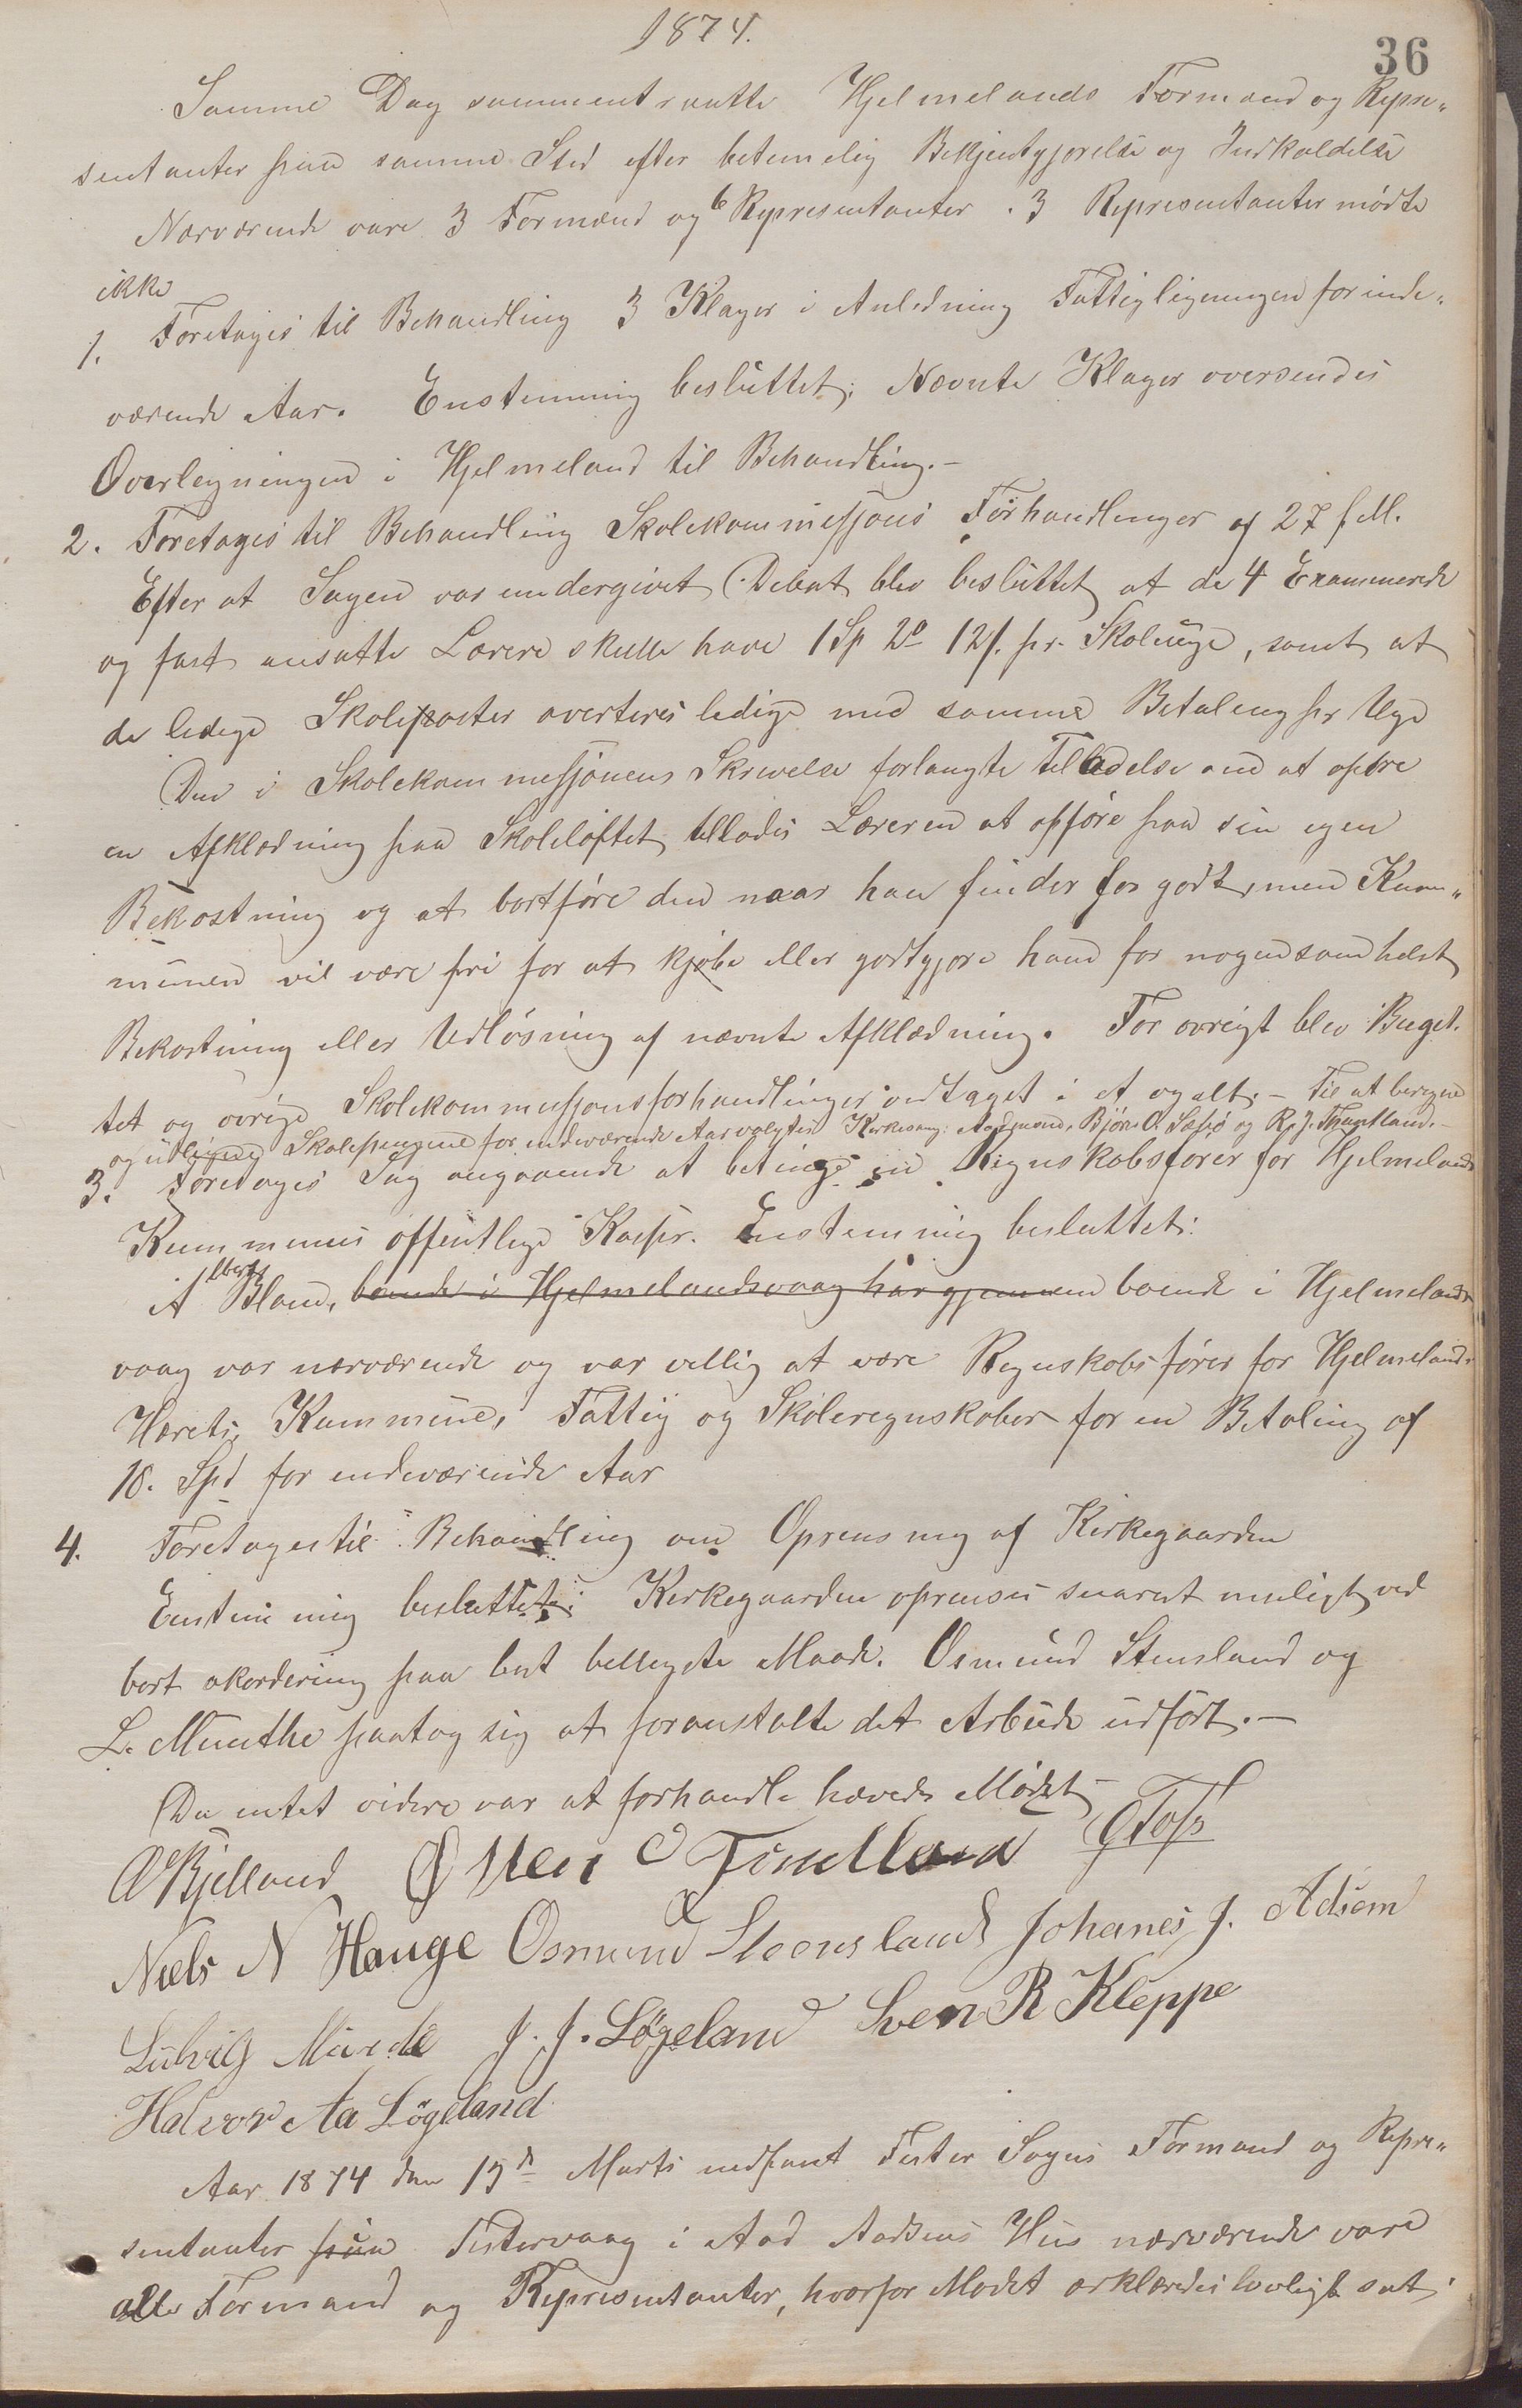 1874.
36
Samme Dag sammentraatte Hjelmelands Formænd og Repre„
sentanter paa samme Sted efter betimelig Bekjentgjørelse og Indkaldelse
Nærværende vare 3 Formænd og 6 Representanter. 3 Representanter mødte
ikke
1. Foretages til Behandling 3 Klager i Anledning Fattigligningen for inde„
værende Aar. Enstemmig besluttet: Nævnte Klager oversendes
Overligningen i Hjelmeland til Behandling.-
2. Foretages til Behandling Skolekommissjons Forhandlinger af 27 f M.
Efter at Sagen var undergivet Debat blev besluttet at de 4 Examinerede
og fast ansatte Lærere skulle have 1 Sp 2 12 s. pr. Skoleuge, samt at
de ledige Skoleposter averteres ledige med samme Betaling pr Uge
Den i Skolekommissjonens Skrivelse forlangte Tilladelse om at opføre
en Afklædning paa Skoleloftet tillades Læreren at opføre paa sin egen
Bekostning og at bortføre den naar han finder for godt, men Kom„
munen vil være fri for at kjøbe eller godtgjøre ham for nogensomhelst
Bekostning eller Udløsning af nævnte Afklædning. For øvrigt blev Buget.
tet og øvrige Skolekommissjonsforhandlinger vedtaget i et og alt.- Til at beregne
og utligne Skolepengene for indeværende Aar valgtes Kirkesang: Aadmund, Bjørn O. Sæbø og R. J. Tøtland.-
3. Foretages Sag angaaende at betinge en Regnskabsfører for Hjelmelands
Kummunes offentlige Kasser. Enstemmig besluttet:
Albert Bland, boende i Hjelmelandsvaag har gjennem boende i Hjelmelands
vaag var nærværende og var villig at være Regnskabsfører for Hjelmelands
Hærets, Kummune, Fattig og Skoleregnskaber for en Betaling af
18. Spd for indeværende Aar
4. Foretages til Behandling om Oprensning af Kirkegaarden
Enstemmig besluttet: Kirkegaarden oprenses snarest muligt ved
bort akordering paa best belleigste Maade. Osmund Stensland og
L. Munthe paatog sig at foranstalte det Arbeide udført.-
Da intet videre var at forhandle hævedes Mødet
O Kjelland Østen O Tuntland G Tofs
Niels N Hauge Osmund Steensland Johanes J. Adsem
Ludvig Munthe J. J. Løgeland Sven R Kleppe
Halvor Aa Løgeland
Aar 1874 den 15d Marts indfant Fister Sogns Formænd og Repre„
sentanter paa Fistervaag i Aad Aadsens Hus nærværende vare
alle Formænd og Representanter, hvorfor Mødet erklæredes lovligt sat.